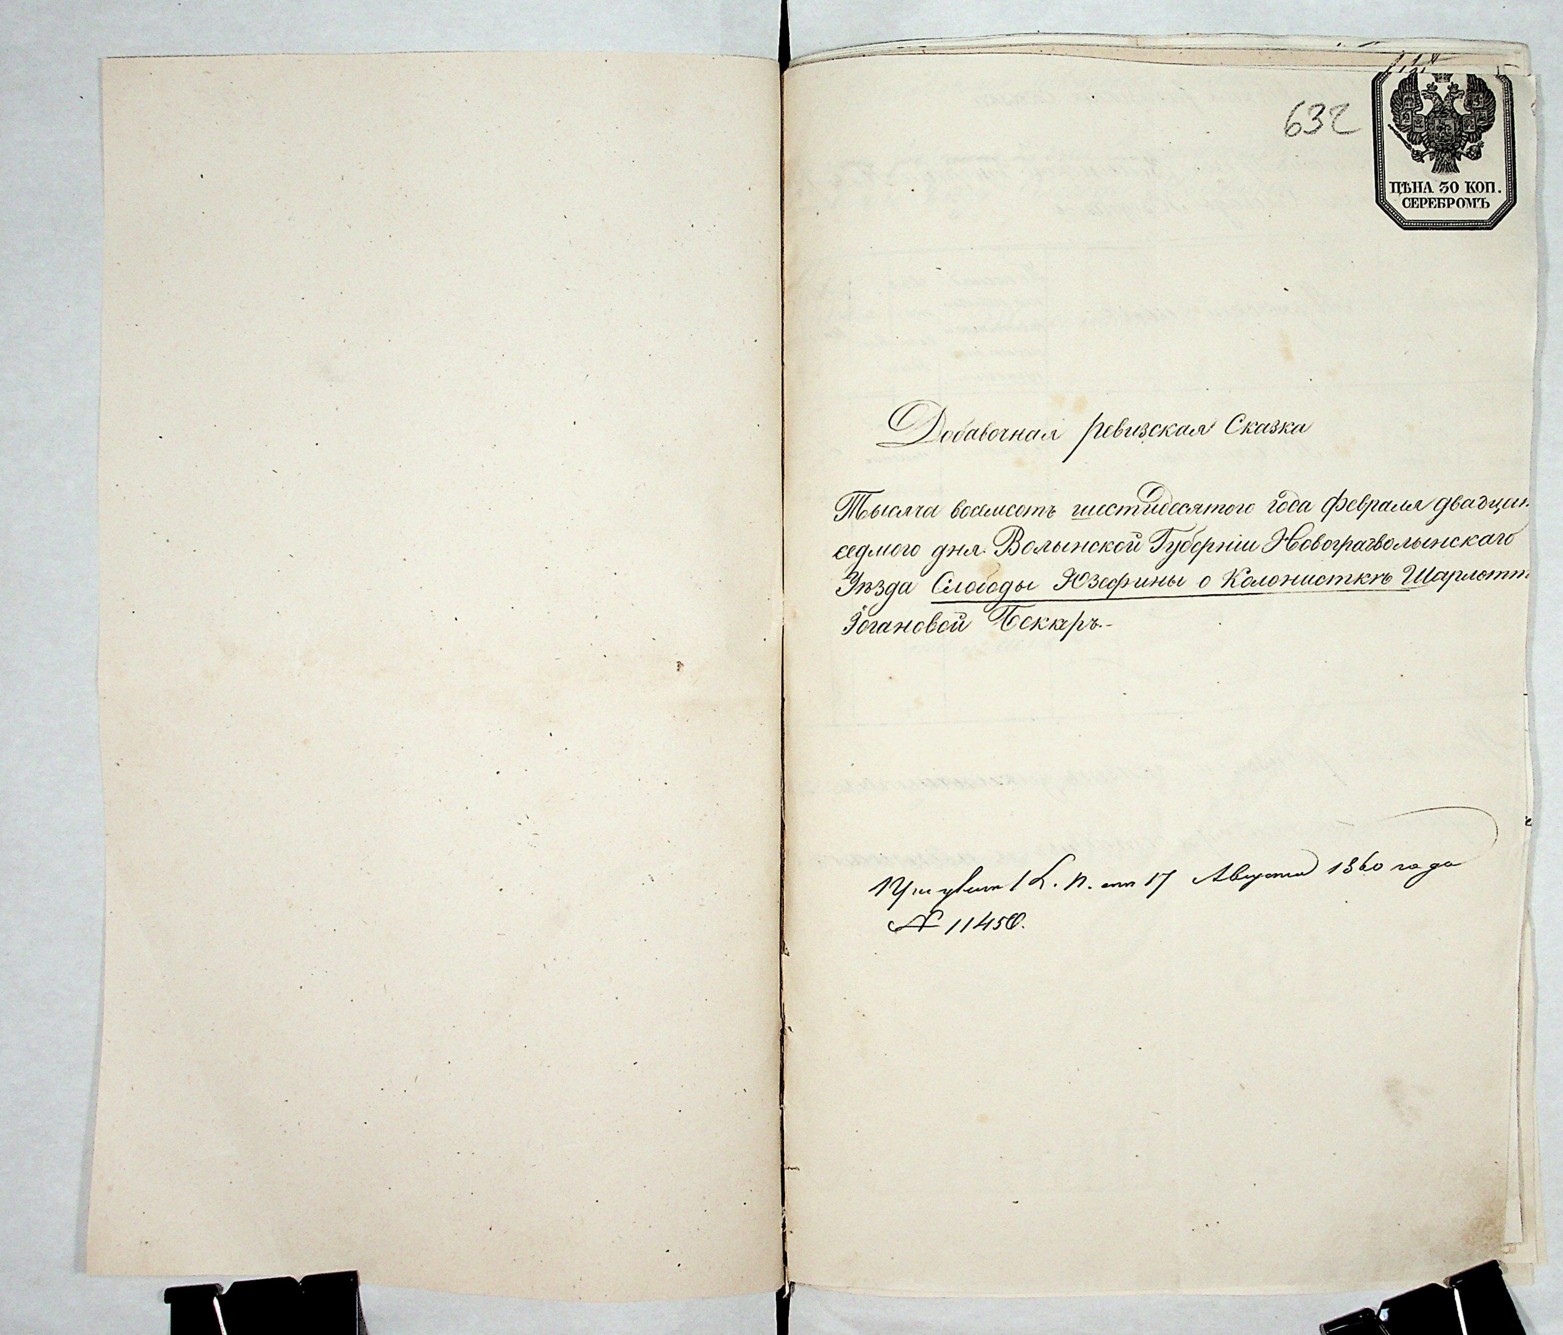 632
ЦѢНА 30 КОП.
СЕРЕБРОМЪ
Добавочная ревизская Сказка
Тысяча восемсотъ шестидесятого года февраля двадцат
седмого дня Волынской Губерніи Новоградволынскаго
Уѣзда Слободы Юзефины о Колонисткѣ Шарлотт
Іогановой Беккеръ.-
К. П. отъ 17 Августа 1860 года
№ 11450.